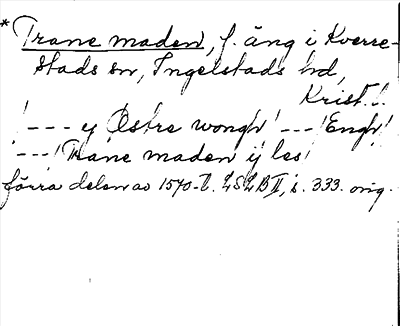 * Trane maden, f. äng i Kverre-
stads sn, Ingelstads hd,
Krist. l.
! --- y Østre wongh! --- ! Engh!
--- ! Trane maden ij les!
förra delen av 1570-t. LSLB II, s. 333. orig.